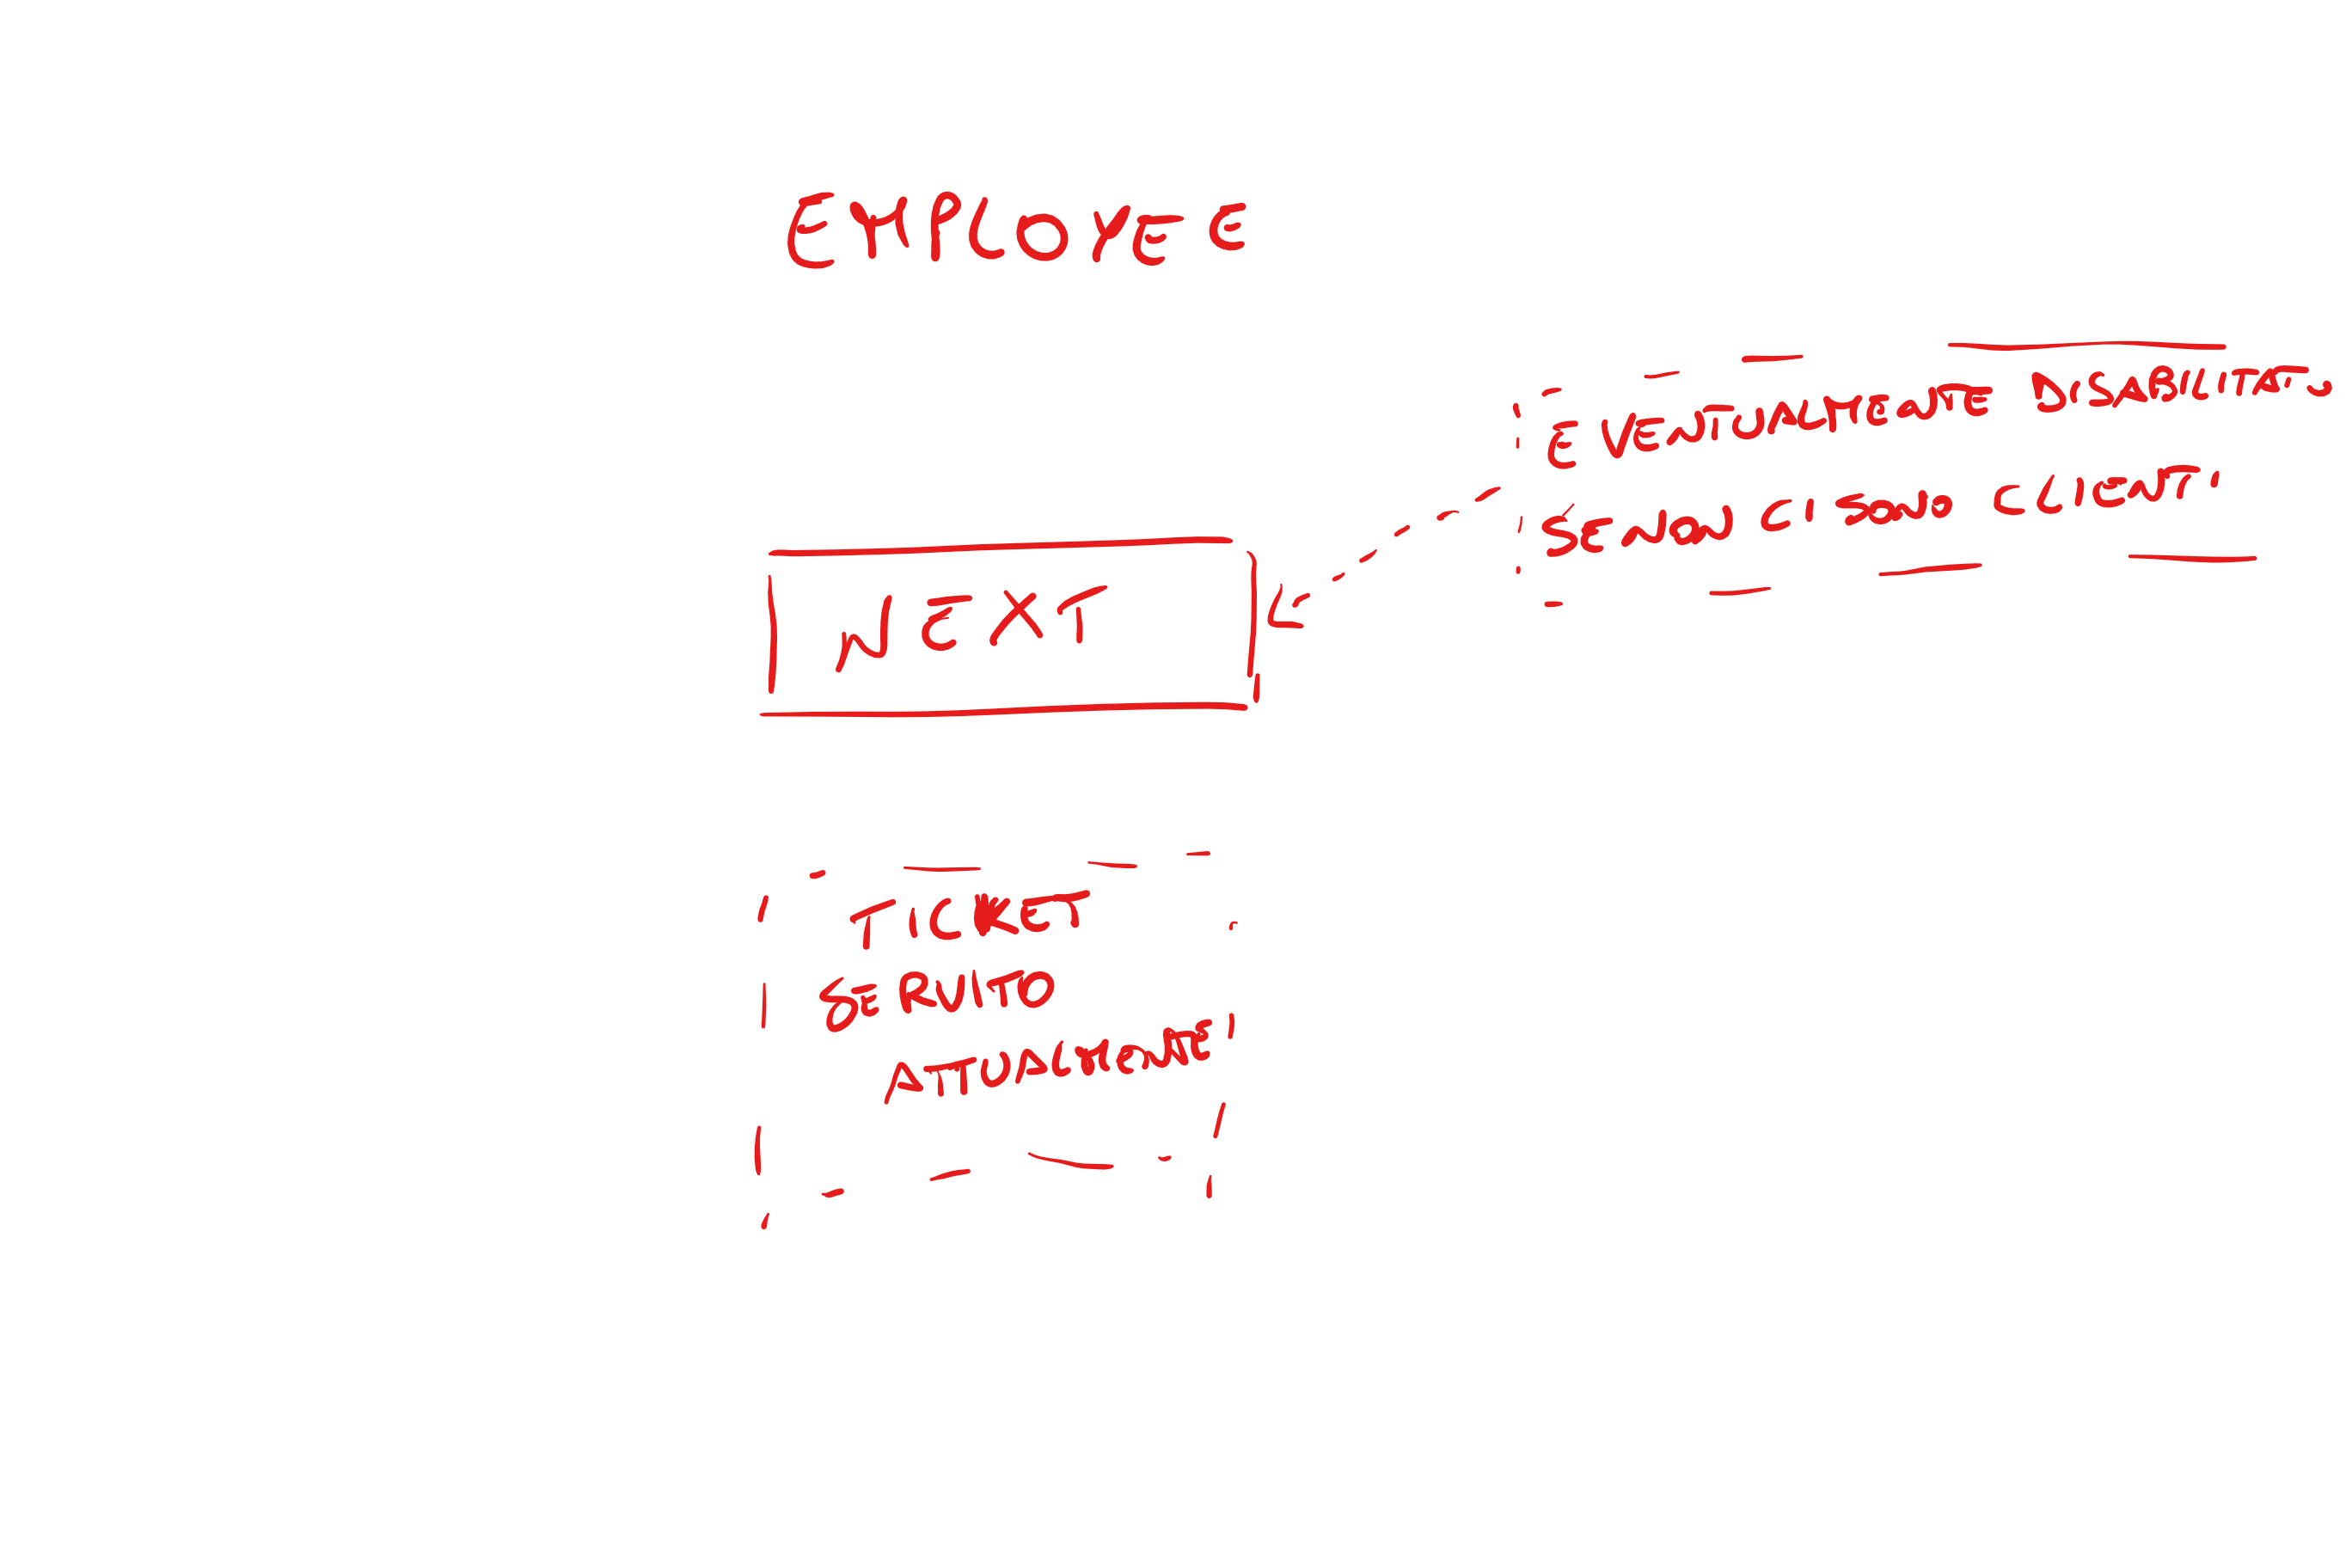 EMPLOYEE
E VENTUALMENTE DISABILITATO
SE NON CI SONO CLIENTI
NEXT
TICKET
SERVITO
ATTUALMENTE